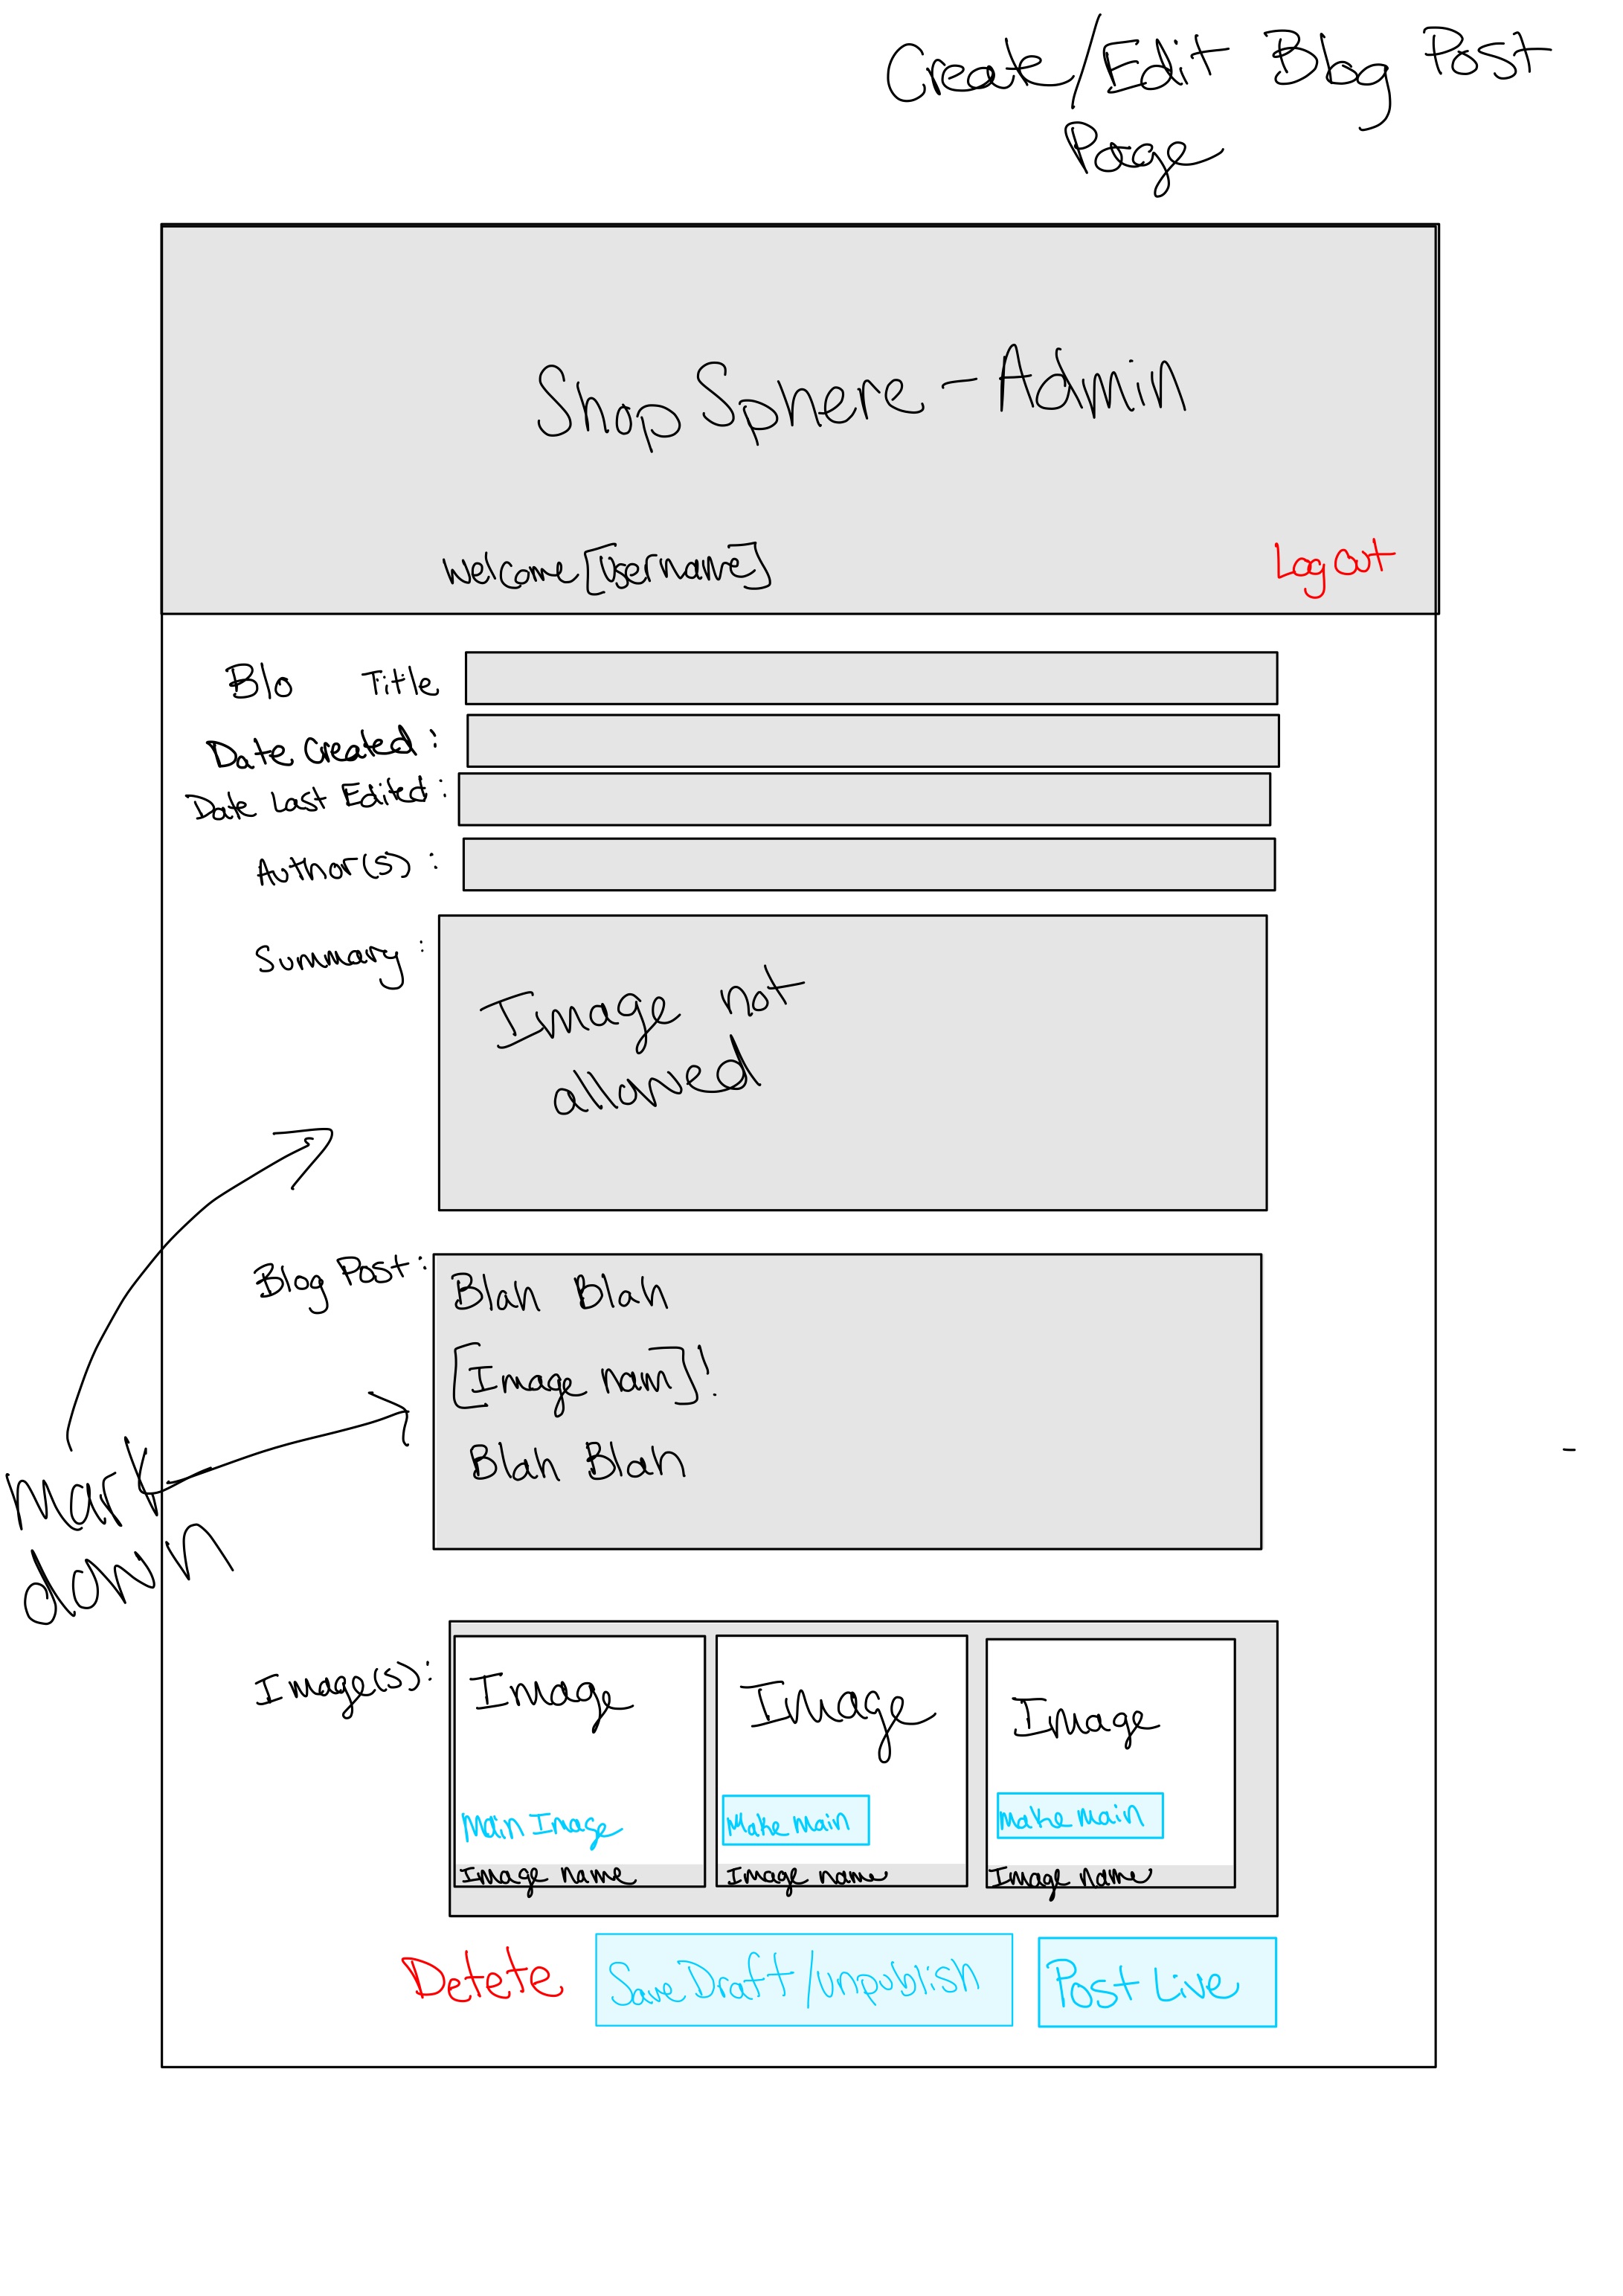 Create/Edit Blog Post
Page
ShopSphere-Admin
Welcome [Username]
Logout
Blo Title
Date Created:
Date Last Edited:
Author(s):
Summary:
Image not
allowed
Blog Post:
Blah Blah
[Image nam]!
Blah Blah
Mark
down
Image(s):
Image
Image
Image
Main Image
Make main
make main
Image name
Image name
Image name
Detete
Save Draft/unpublish
Post Live